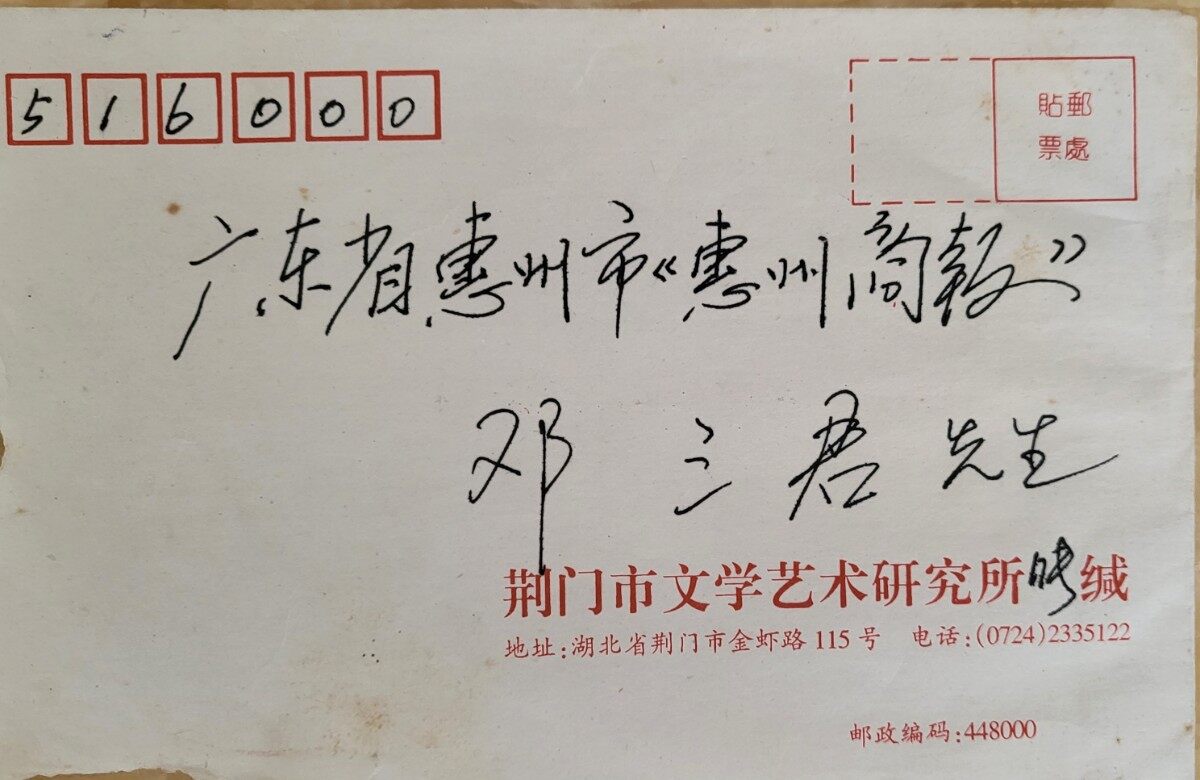 516000
貼郵
票處
广东省惠州市《惠州商報》
邓三君先生
荆门市文学艺术研究所缄
地址:湖北省荆门市金虾路115号 电话:(0724)2335122
邮政编码:448000